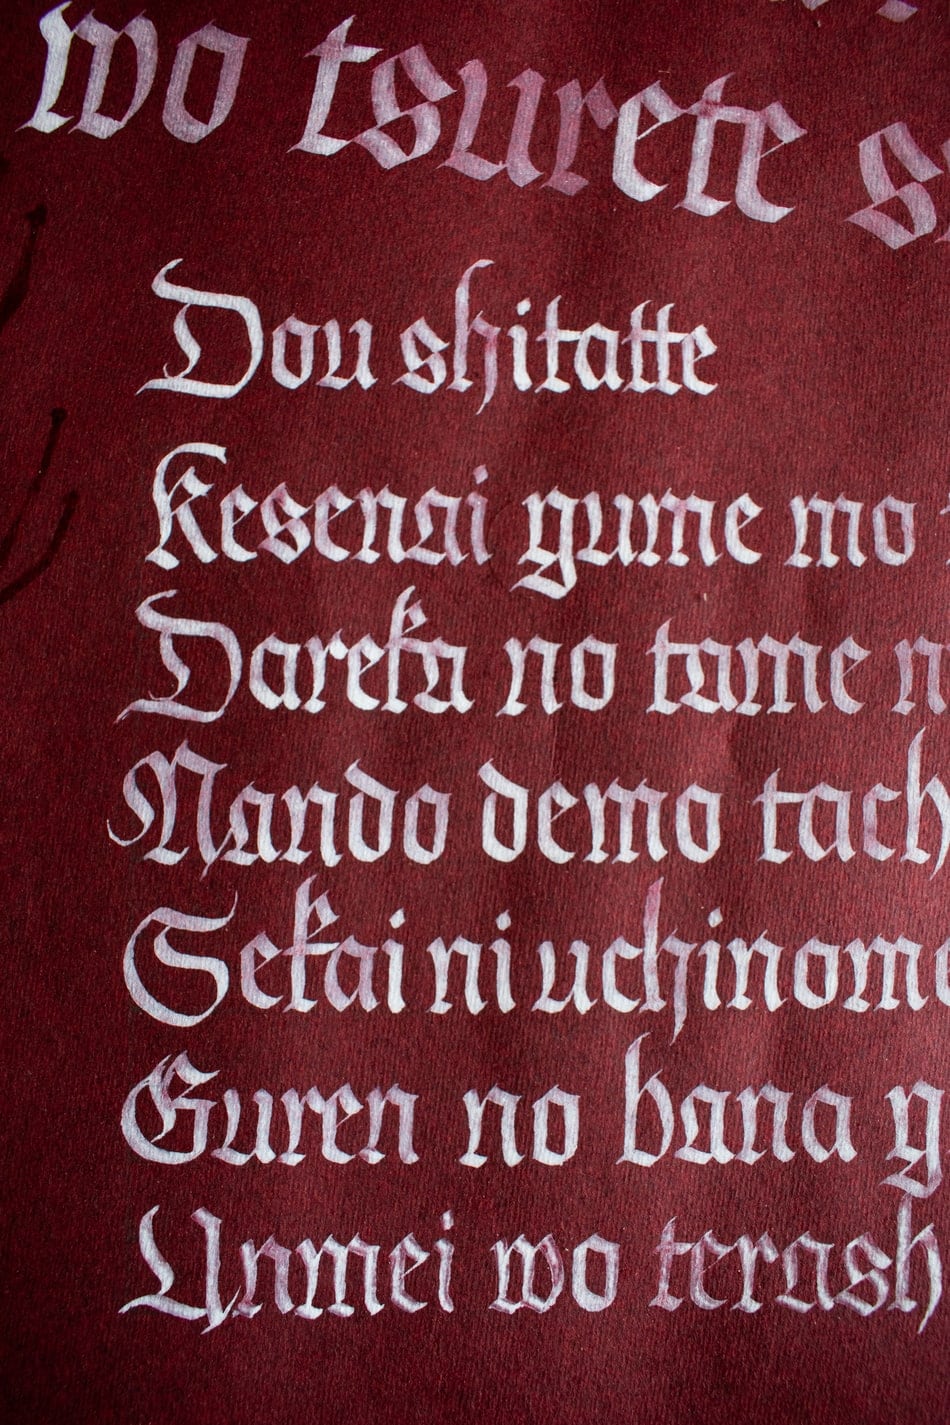 wo tsurete s
Dou shitatte
Kesenai yume mo
Dareka no tame n
Nando demo tach
Sekai ni uchinome
Guren no hana y
Unmei wo terash